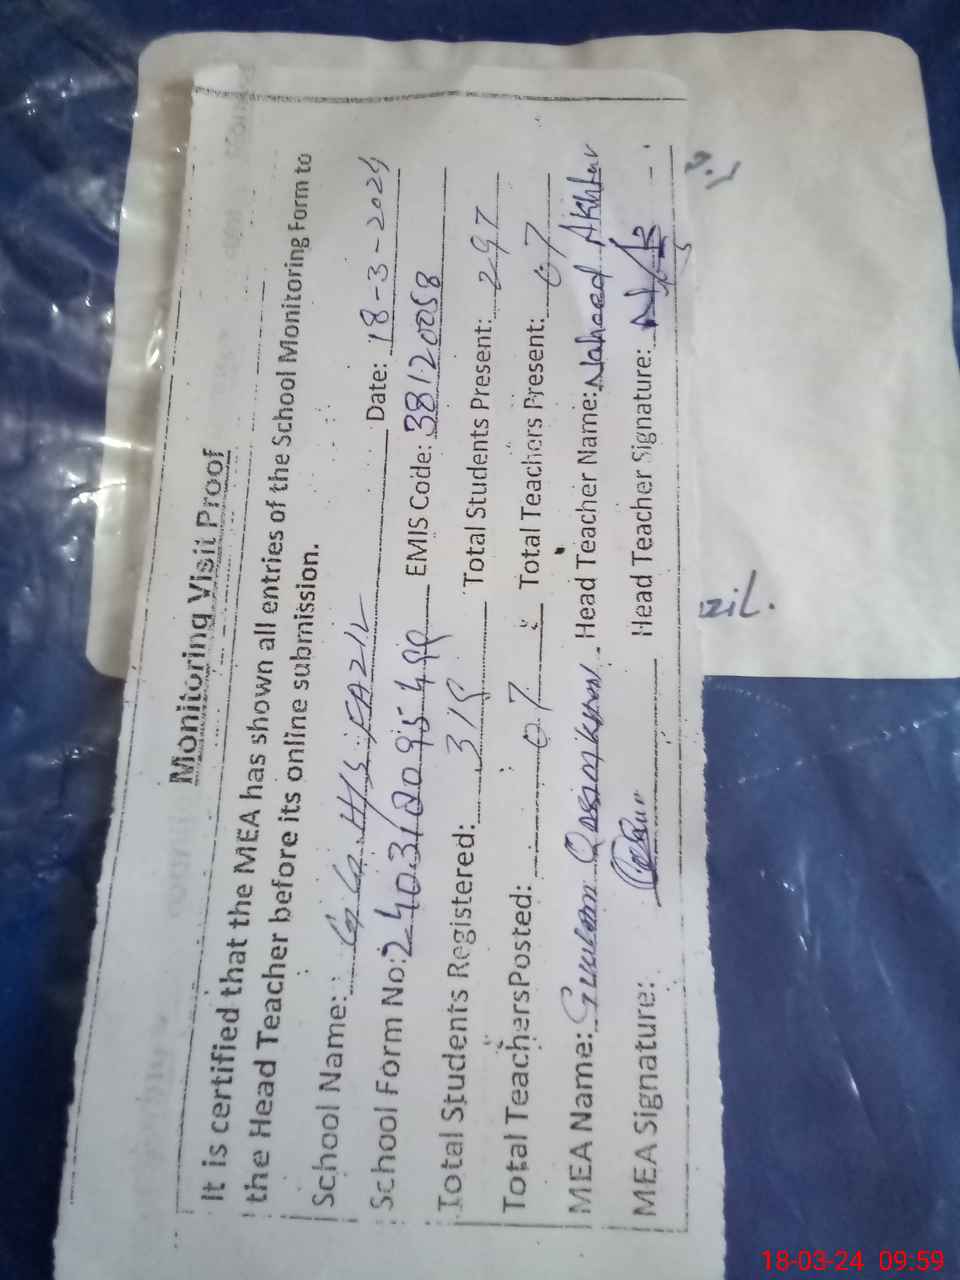 Monitoring Visit Proof
It is certified that the MEA has shown all entries of the School Monitoring Form to
the Head Teacher before its online submission.
School Name: G.G.H/S FAZIL Date: 18-3-2024
School Form No: 2403120095499 EMIS Code: 38120058
Total Students Registered: 315 Total Students Present: 297
Total Teachers Posted: 07 Total Teachers Present: 07
MEA Name: Head Teacher Name: Naheed Akhtar
MEA Signature: Head Teacher Signature:
zil.
18-03-24 09:59